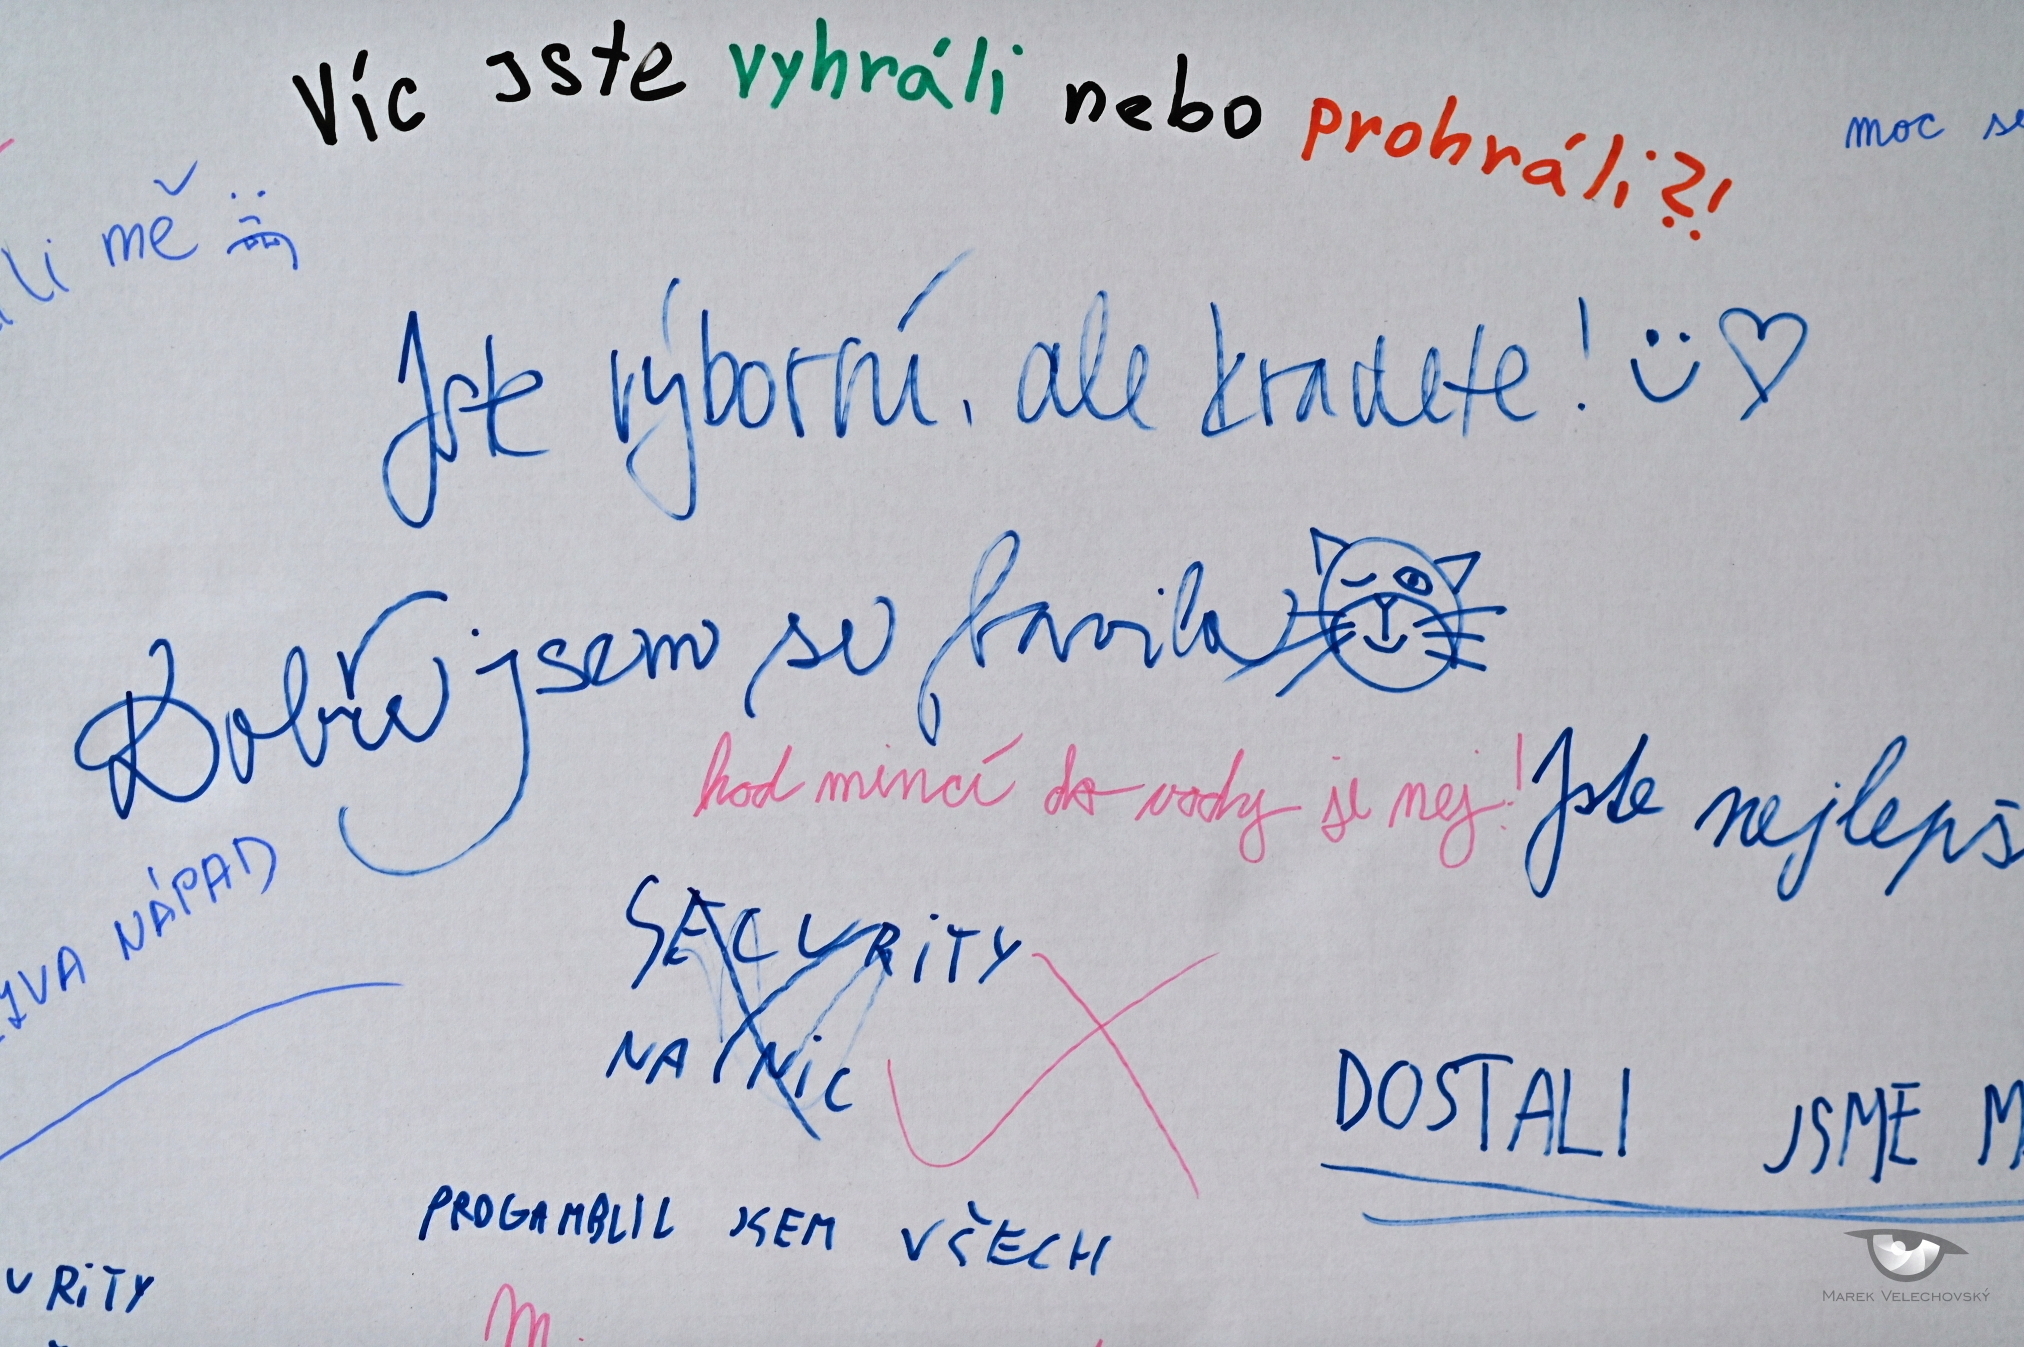 Víc jste vyhráli nebo prohráli?!
moc se
mě
Jste výborní, ale kradete!
Dobře jsem se bavila
hod mincí do vody je nej!
Jste nejlepš
NÁPAD
SECURITY
NA NIC
DOSTALI JSME M
PROGAMBLIL JSEM VŠECH
URITY
MAREK VELECHOVSKÝ